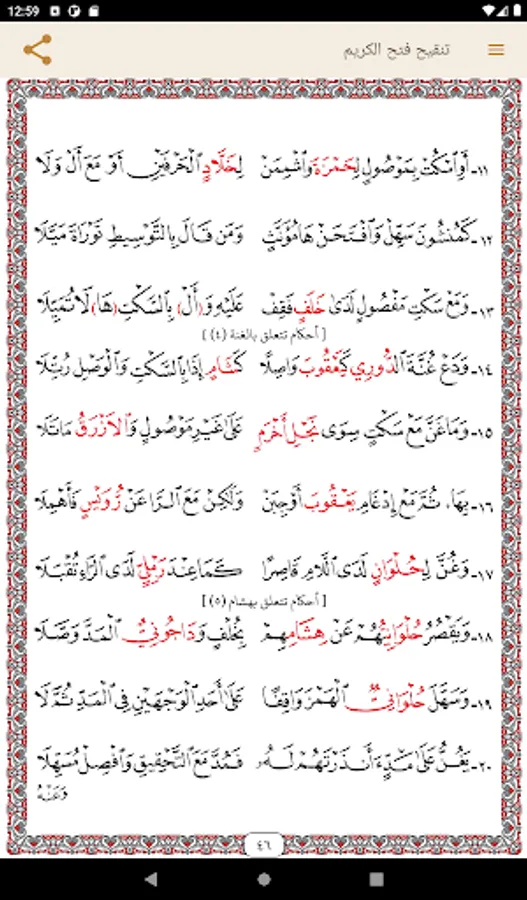 12:59
تنقيح فتح الكريم
١١- أَوِ ٱسْكُتْ بِمَوْصُولٍ لِحَمْزَةَ وَأَشْمِمَنْ لِخَلَّادٍ ٱلْحَرْفَيْنِ أَوْ مَعَ أَلْ وَلَا
١٢- كَمُنْشُونَ سَهِّلْ وَٱفْتَحَنْ هَا مُؤَنَّثٍ وَمَن قَالَ بِالتَّوْسِيطِ تَوْرَاةَ مَيَّلَا
١٣- وَمَعْ سَكْتِ مَفْصُولٍ لَدَى خَلَفٍ فَقِفْ عَلَيْهِ وَ(أَلْ) بِالسَّكْتِ (هَا) لَا تُمَيِّلَا
[ أحكام تتعلق بالغنة (٤) ]
١٤- وَدَعْ غُنَّةَ ٱلدُّورِي كَيَعْقُوبَ وَاصِلًا كَشَامٍ إِذَا بِالسَّكْتِ وَٱلْوَصْلِ رُتِّلَا
١٥- وَمَا غَنَّ مَعْ سَكْتٍ سِوَى نَجْلِ أَخْرَمٍ عَلَى غَيْرِ مَوْصُولٍ وَٱلَازْرَقُ مَا تَلَا
١٦- بِهَا، ثُمَّ مَعْ إِدْغَامِ يَعْقُوبَ أَوْجِبَنْ وَلَكِنْ مَعَ ٱلرَّا عَنْ رُوَيْسٍ فَأَهْمِلَا
١٧- وَغُنَّ لِحُلْوَانِي لَدَى ٱللَّامِ قَاصِرًا كَمَا عِنْدَ رَمْلِيٍّ لَدَى ٱلرَّاءِ تُقْبَلَا
[ أحكام تتعلق بهشام (٥) ]
١٨- وَيَقْصُرُ حُلْوَانِيُّهُمْ عَنْ هِشَامِهِمْ بِخُلْفٍ وَدَاجُونِيٌّ ٱلْمَدَّ وَصَّلَا
١٩- وَسَهَّلَ حُلْوَانِيٌّ ٱلْهَمْزَ وَاقِفًا عَلَى أَحَدِ ٱلْوَجْهَيْنِ فِي ٱلْمَدِّ تُدَّلَا
٢٠- يَغُنُّ عَلَى مَدٍّ ءَأَنذَرْتَهُمْ لَهُ فَمُدَّ مَعَ ٱلتَّحْقِيقِ وَٱفْصِلْ مُسَهِّلَا
وَعَنْهُ
٤٦